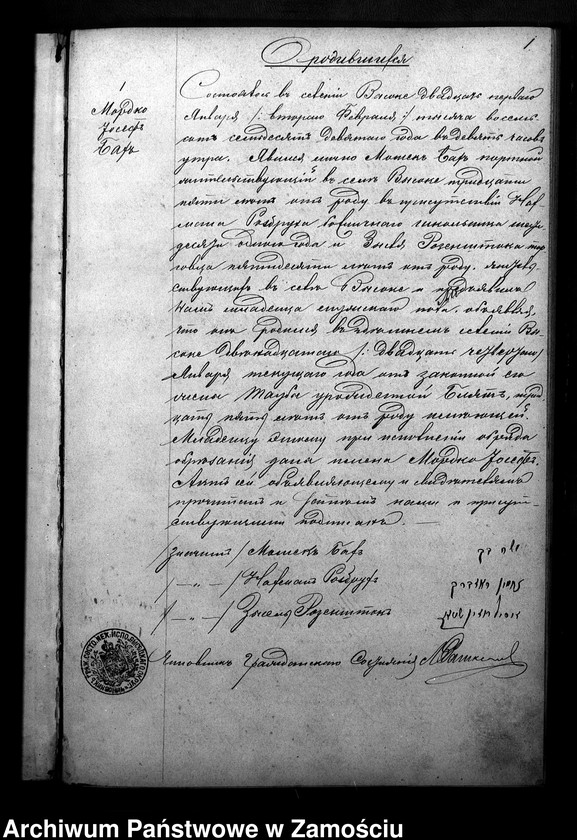 1
О родившихся
1
Мордко
Іосефъ
Баръ
Состоялось въ селеніи Высоке двадцать перваго
Января /: втораго Февраля :/ тысяча восемь
сотъ семдесятъ девятаго года въ девять часовъ
утра. Явился лично Мошекъ Баръ портной
жительствующій въ селѣ Высоке тридцати
пяти лѣтъ отъ роду въ присутствіи
десяти одного года и Розенштока
говца пятидесяти лѣтъ отъ роду
ствующихъ въ селѣ Высоке и предъявилъ
намъ младенца мужескаго пола, объявляя,
что онъ родился въ селеніи Вы-
соке двѣнадцатаго /: двадцать четвертаго
Января текущаго года отъ законной его
жены Тауба урожденной трид
цать пять лѣтъ отъ роду имеющей.
Младенцу этому при исполненіи обряда
обрѣзанія дано имена Мордко Іосефъ.
Актъ сей объявляющему и свидѣтелямъ
прочитанъ и нами и присут-
ствующими подписанъ. —
/значитъ/ Мошекъ Баръ
/—„—/
/—„—/ Розенштокъ
Чиновникъ Гражданскаго Состоянія
Archiwum Państwowe w Zamościu